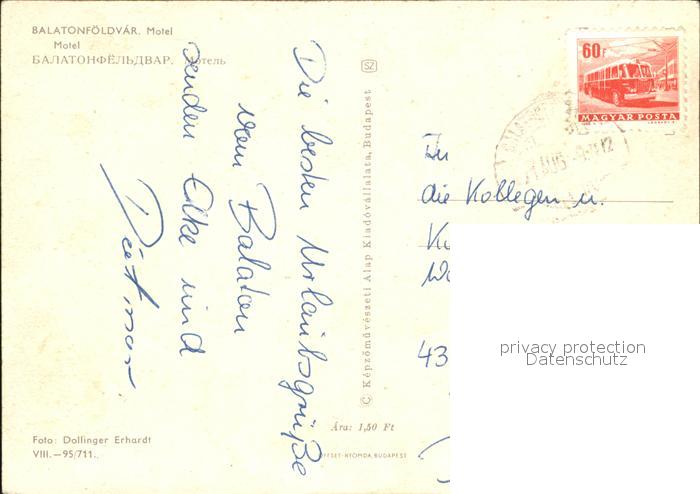 BALATONFÖLDVÁR. Motel
Motel
БАЛАТОНФЁЛЬДВАР. Мотель
Die besten Urlaubsgrüße
vom Balaton
senden Elke und
Dietmar
© Képzőművészeti Alap Kiadóvállalata, Budapest
SZ
60f
MAGYAR POSTA
An
die Kollegen u.
43
privacy protection
Datenschutz
Ára: 1,50 Ft
OFFSET-NYOMDA, BUDAPEST
Foto: Dollinger Erhardt
VIII.—95/711.